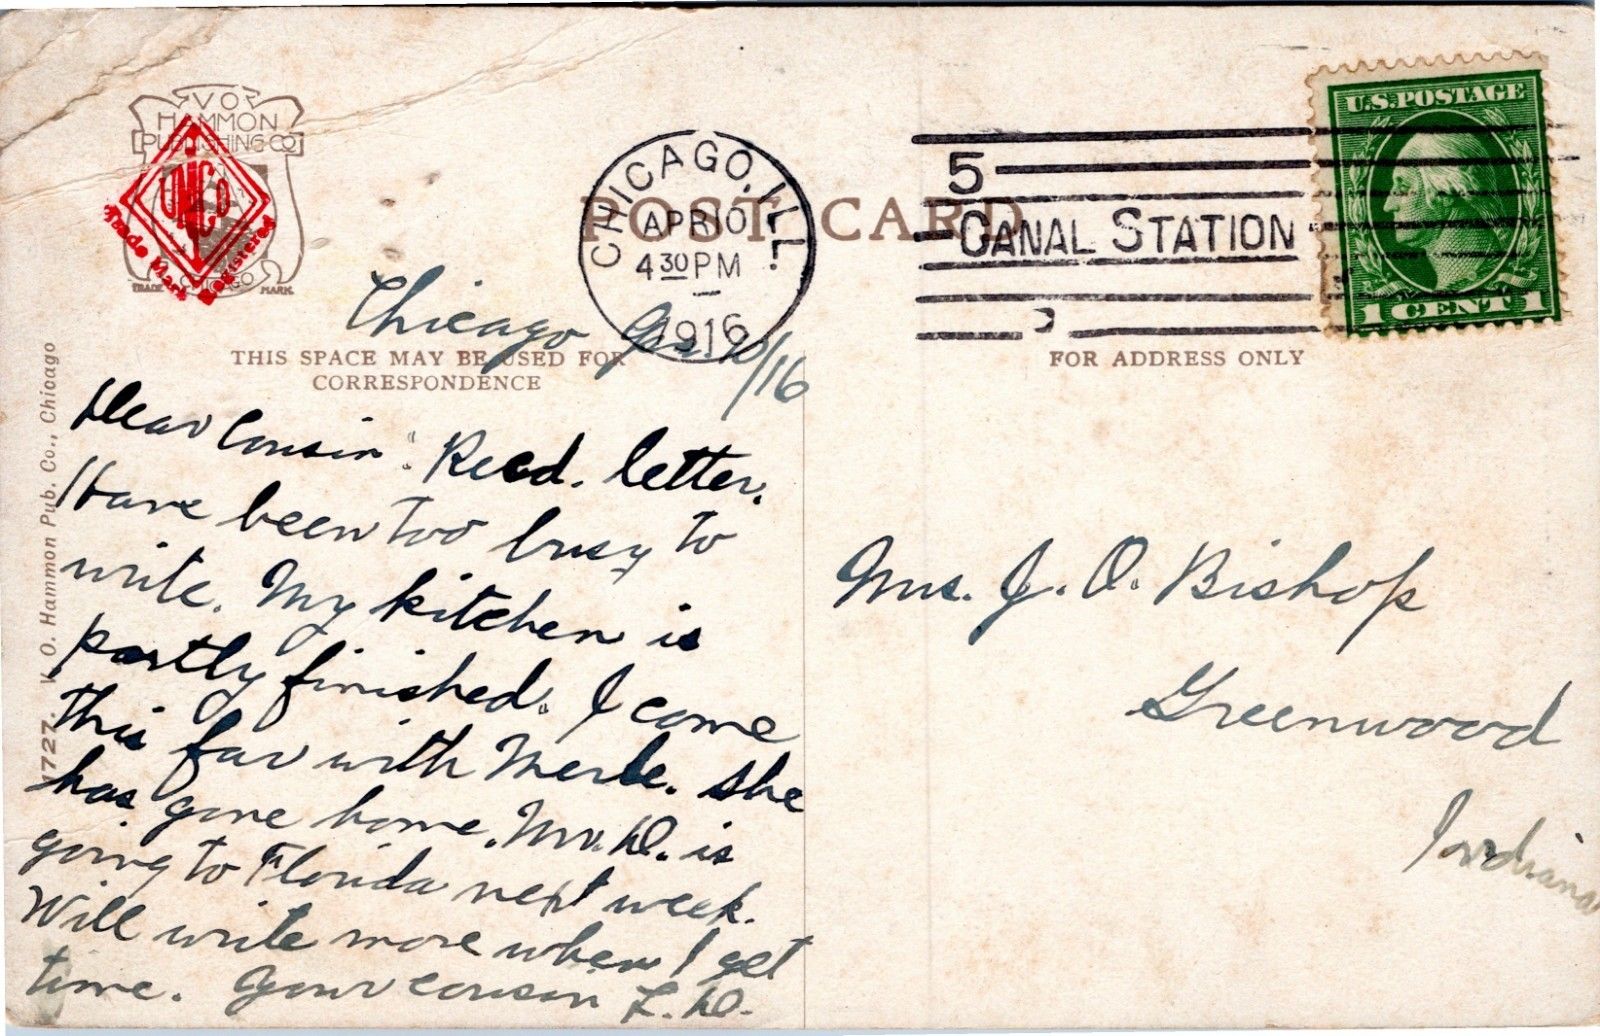 V O
HAMMON
PUBLISHING CO
CHICAGO
TRADE MARK
VOHMCo
Trade Mark Registered
POST CARD
CHICAGO, ILL.
APR 10
4 30 PM
1916
5
CANAL STATION
U.S. POSTAGE
1 CENT 1
THIS SPACE MAY BE USED FOR
CORRESPONDENCE
FOR ADDRESS ONLY
1727. V. O. Hammon Pub. Co., Chicago
Chicago 10/16
Dear Cousin: Recd. letter.
Have been too busy to
write. My kitchen is
partly finished. I came
this far with Merle. She
has gone home. Mr. D. is
going to Florida next week.
Will write more when I get
time. Your cousin L. D.
Mrs. J. O. Bishop
Greenwood
Indiana